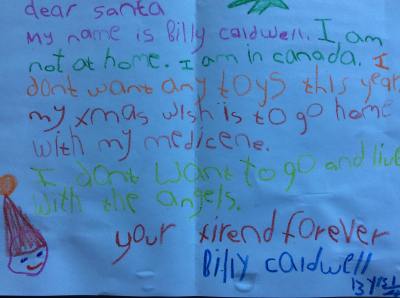 dear santa
my name is Billy caldwell. I am
not at home. I am in canada. I
dont want any toys this year
my xmas wish is to go home
with my medicene.
I dont want to go and live
with the angels.
your firend forever
Billy caldwell